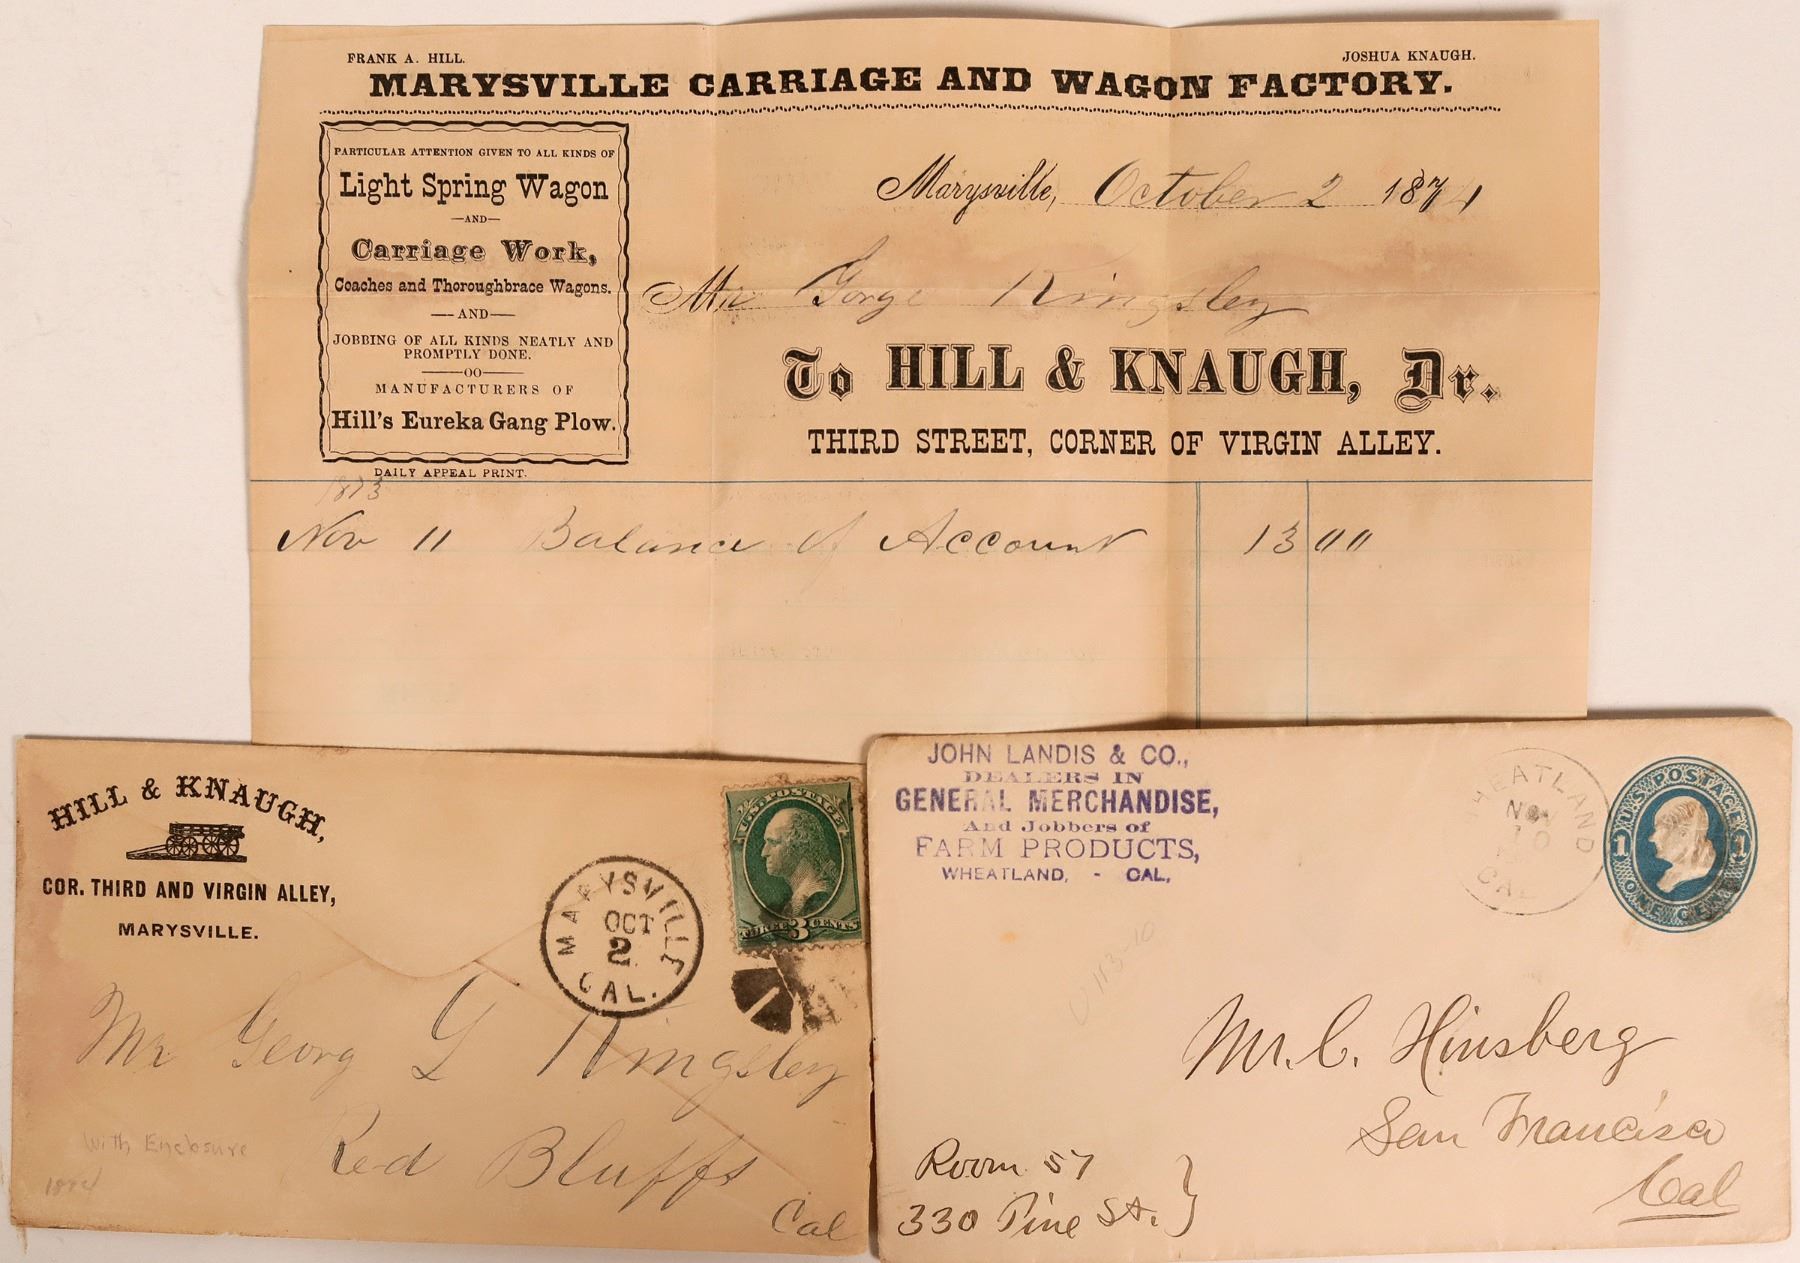 FRANK A. HILL.
JOSHUA KNAUGH.
MARYSVILLE CARRIAGE AND WAGON FACTORY.
PARTICULAR ATTENTION GIVEN TO ALL KINDS OF
Light Spring Wagon
—AND—
Carriage Work,
Coaches and Thoroughbrace Wagons.
—AND—
JOBBING OF ALL KINDS NEATLY AND
PROMPTLY DONE.
——OO——
MANUFACTURERS OF
Hill's Eureka Gang Plow.
DAILY APPEAL PRINT.
Marysville, October 2 1874
Mr Gorge Kingsley
To HILL & KNAUGH, Dr.
THIRD STREET, CORNER OF VIRGIN ALLEY.
1873
Nov 11 Balance of Account 13 00
HILL & KNAUGH,
COR. THIRD AND VIRGIN ALLEY,
MARYSVILLE.
MARYSVILLE
OCT
2
CAL.
U.S. POSTAGE
THREE 3 CENTS
Mr Georg G Kingsley
Red Bluffs
Cal
With Enclosure
1874
JOHN LANDIS & CO.,
DEALERS IN
GENERAL MERCHANDISE,
And Jobbers of
FARM PRODUCTS,
WHEATLAND, - CAL,
WHEATLAND
NOV
10
CAL
U.S. POSTAGE
1 1
ONE CENT
U113-10
Mr. C. Hinsberg
San Francisco
Cal
Room 57
330 Pine St.